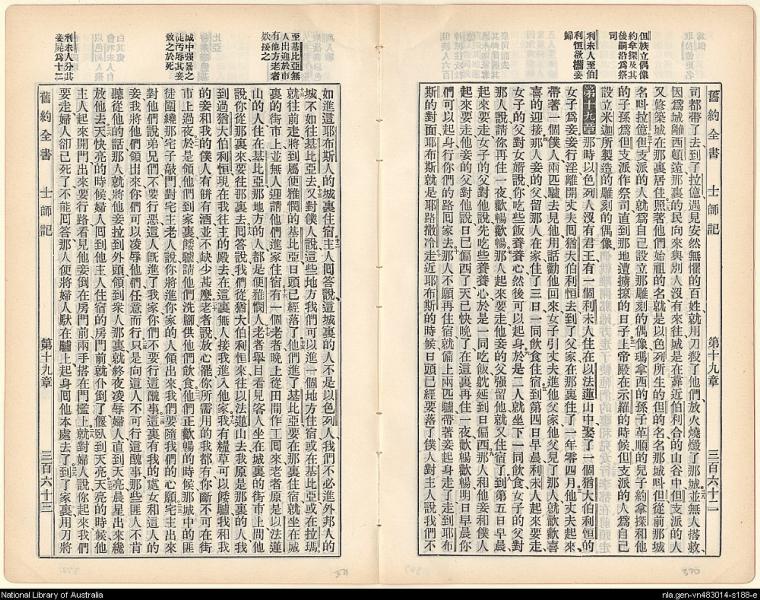 舊約全書 士師記 第十九章 三百六十二
但族立偶像
利未人至伯
利恒欲攜妾
歸
司都帶了去到了拉億遇見安然無懼的百姓就用刀殺了他們放火燒燬了那城並無人搭救
因爲城離西頓遠那裏的民向來與別人沒有來往城是在靠近伯利合的山谷中但支派的人
又修築城在那裏居住照著他們始祖的名就是以色列所生的但的名名那城叫但從前那城
名叫拉億但支派的人就爲自己設立那雕刻的偶像瑪拿西的孫子革順的兒子約拿探和他
的子孫爲但支派作祭司直到那地遭擄掠的日子上帝殿在示羅的時候但支派的人爲自己
設立米迦所製造的雕刻的偶像
第十九章 那時以色列人沒有君王有一個利未人住在以法蓮山中娶了一個猶大伯利恒的
女子爲妾妾行淫離開丈夫囘猶大伯利恒去到了父家在那裏住了一年零四月他丈夫起來
帶著一個僕人兩匹驢去見他用話勸他回來女子引丈夫進他父家他父見了那人就歡歡喜
喜的迎接那人妾的父留那人在家住了三日一同飲食住宿到第四日早晨利未人起來要走
女子的父對女婿說你吃些飯養養心然後可以起身於是二人就坐下一同飲食女子的父對
那人說請你再住一夜歡暢歡暢那人起來要走他妾的父強留他就又住宿了到第五日早晨
起來要走女子的父對他說先吃些養養心於是一同吃飯就延到日偏西那人和他妾和僕人
起來要走他妾的父對他說日已偏西了天已快晚了在這裏再住一夜歡暢歡暢明日早晨你
們可以起身行你們的路囘家去那人不願再住宿就備上兩匹驢帶著妾起身走了走到耶布
斯的對面耶布斯就是耶路撒冷走近耶布斯的時候日頭已經要落了僕人對主人說我們不
至基比亞無
人出迎於市
有他方老者
欵接之
城中強暴之
徒污辱其妾
致之於死
利未人分其
妾屍爲十二
如進這耶布斯人的城裏住宿主人囘答說這城裏的人不是以色列人我們不必進外邦人的
城不如往基比亞去又對僕人說這些地方我們可以進一個地方住宿或在基比亞或在拉瑪
就往前走將到屬便雅憫的基比亞日頭已經落了他們進了基比亞要在那裏住宿就坐在城
裏的街市上並無人迎請他們進家住宿有一個老者晚上從田間作工囘來老者原是以法蓮
山的人住在基比亞那地方的人都是便雅憫人老者舉目看見客人坐在城裏的街市上問他
到過猶大伯利恒現在我往主的殿去在這裏無人接我進入他家我有糧草可以餧驢我和我
的妾和我的僕人有餅有酒並不缺少甚麼老者說放心罷你所需用的我都有你斷不可在街
市上過夜於是領他們到家裏餧驢請他們洗腳他們飲食他們正歡暢的時候那城中的匪
徒圍繞那宅子敲門對宅主老人說你將進你家的人領出來我們要隨我們的心願宅主出來
對他們說弟兄們不要行惡這人旣進了我家你們不要行這醜事這裏有我的處女和這人的
妾我將他們領出來你們可以凌辱他們任意而行只是向這人不可行這醜事那些匪人不肯
聽從他的話那人就將他妾拉到外頭領到衆人那裏就終夜凌辱婦人直到天亮晨星出來纔
放他去天快亮的時候婦人囘到他主人住宿的房門前就仆倒了偃臥到天亮天亮的時候他
主人起來開門出來要行路看見他妾倒在房門前兩手搭在門檻上就對婦人說你起來我們
要走婦人卻已死了不能囘答那人便將婦人馱在驢上起身囘他本處去了到了家裏用刀將
舊約全書 士師記 第十九章 三百六十三
National Library of Australia
nla.gen-vn483014-s186-e